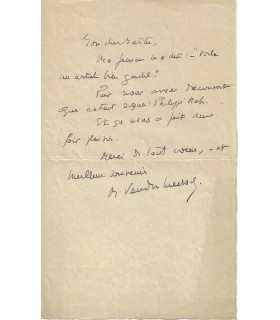 Mon cher Maître,
Ma femme m'a dit : "Voilà
un article bien gentil"!
Puis nous avons découvert
que c'était signé : Philippe
Et ça nous a fait deux
fois plaisir.
Merci de tout cœur, et
meilleur souvenir
M. Van der Meersch